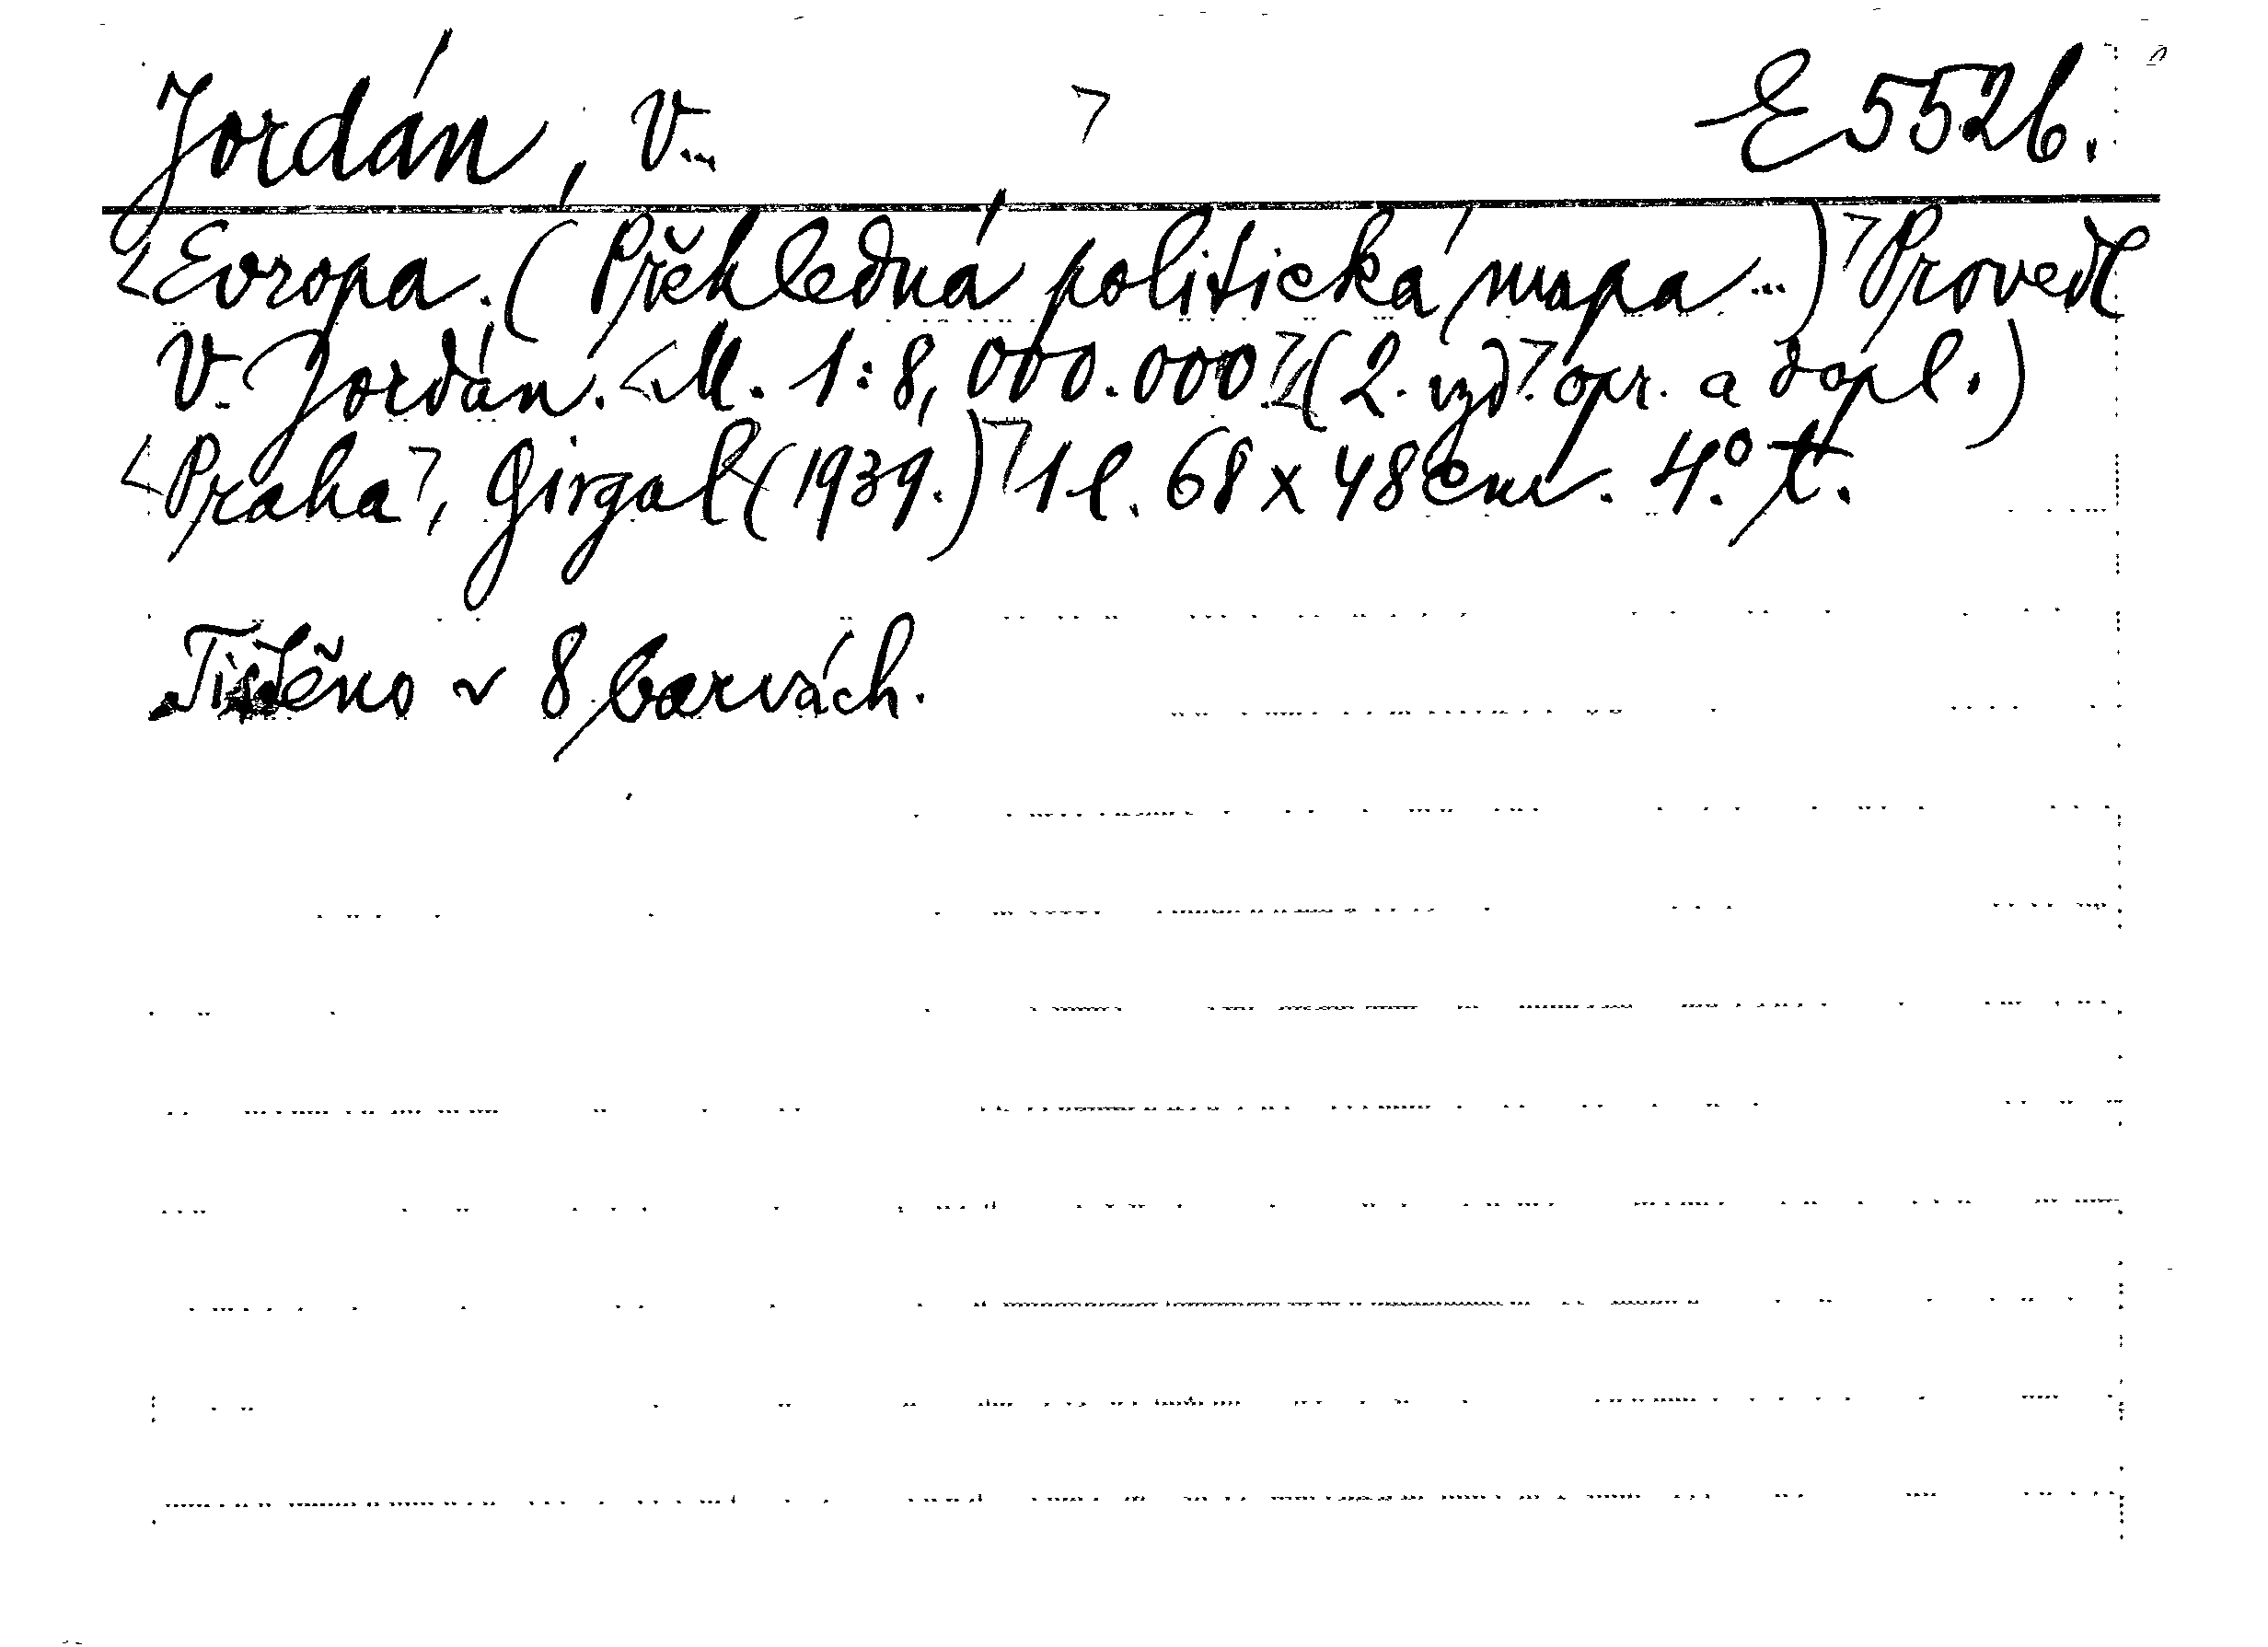 Jordán, V... E 5526.
Evropa. (Přehledná politická mapa...) Provedl
V. Jordán. M. 1:8,000.000 (2. vyd. opr. a dopl.)
Praha, Girgal (1939.) 1 l. 68 x 48 cm. 4.° t.
Tištěno v 8 barvách.